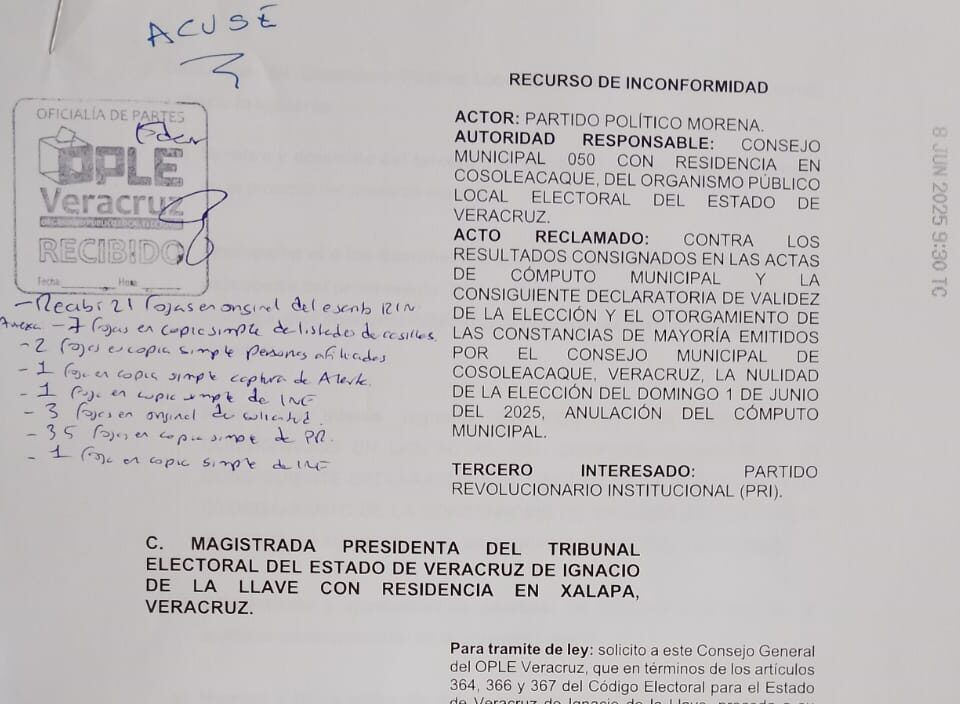 ACUSE
OFICIALÍA DE PARTES
OPLE
Veracruz
RECIBIDO
Fecha Hora
- Recibí 21 fojas en original del escrito RIN
Anexa - 7 fojas en copia simple de listados de casillas.
- 2 fojas en copia simple personas afiliadas
- 1 foja en copia simple captura de Alerta.
- 1 foja en copia simple de INE
- 3 fojas en original de solicitud.
- 35 fojas en copia simple de PR.
- 1 foja en copia simple de INE
RECURSO DE INCONFORMIDAD
ACTOR: PARTIDO POLÍTICO MORENA.
AUTORIDAD RESPONSABLE: CONSEJO
MUNICIPAL 050 CON RESIDENCIA EN
COSOLEACAQUE, DEL ORGANISMO PÚBLICO
LOCAL ELECTORAL DEL ESTADO DE
VERACRUZ.
ACTO RECLAMADO: CONTRA LOS
RESULTADOS CONSIGNADOS EN LAS ACTAS
DE CÓMPUTO MUNICIPAL Y LA
CONSIGUIENTE DECLARATORIA DE VALIDEZ
DE LA ELECCIÓN Y EL OTORGAMIENTO DE
LAS CONSTANCIAS DE MAYORÍA EMITIDOS
POR EL CONSEJO MUNICIPAL DE
COSOLEACAQUE, VERACRUZ, LA NULIDAD
DE LA ELECCIÓN DEL DOMINGO 1 DE JUNIO
DEL 2025, ANULACIÓN DEL CÓMPUTO
MUNICIPAL.
TERCERO INTERESADO: PARTIDO
REVOLUCIONARIO INSTITUCIONAL (PRI).
8 JUN 2025 9:30 TC
C. MAGISTRADA PRESIDENTA DEL TRIBUNAL
ELECTORAL DEL ESTADO DE VERACRUZ DE IGNACIO
DE LA LLAVE CON RESIDENCIA EN XALAPA,
VERACRUZ.
Para tramite de ley: solicito a este Consejo General
del OPLE Veracruz, que en términos de los artículos
364, 366 y 367 del Código Electoral para el Estado
de Veracruz de Ignacio de la Llave, proceda a su